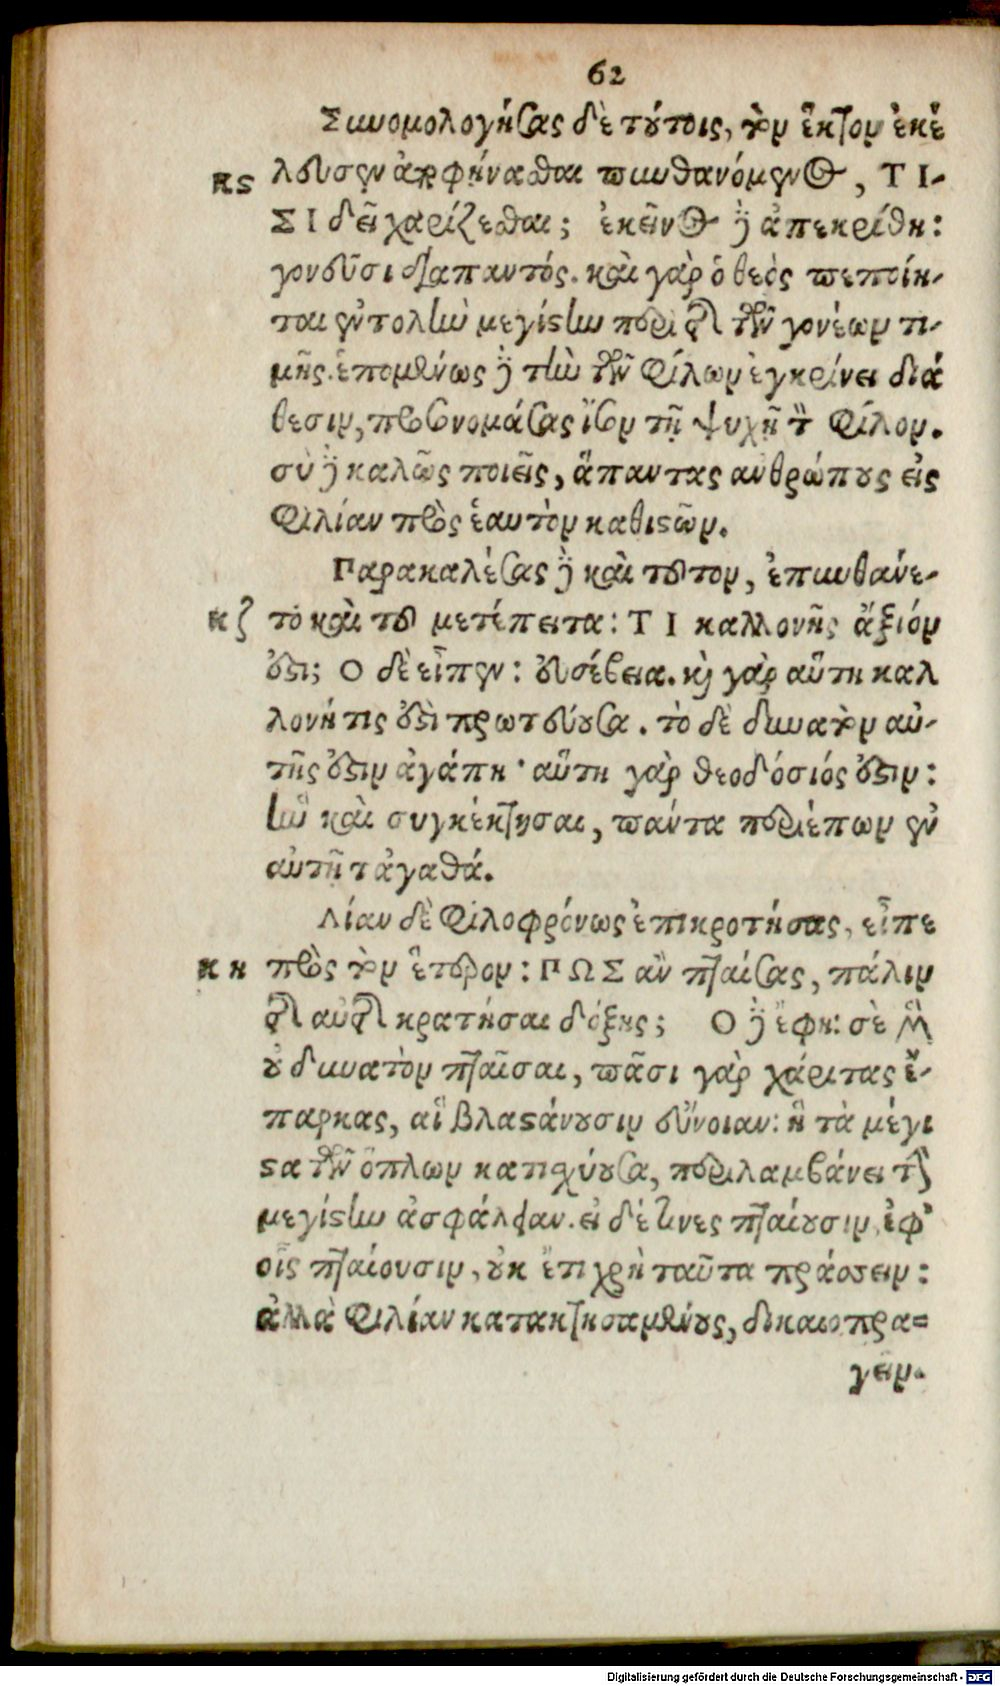 62
Συνομολογήσας δὲ τούτοις, τὸν ἕκτον ἐκέ
κς λευσεν ἀποφήνασθαι πυνθανόμενος, ΤΙ-
ΣΙ δεῖ χαρίζεσθαι; ἐκεῖνος δὲ ἀπεκρίθη:
γονεῦσι διαπαντός. καὶ γὰρ ὁ θεὸς πεποίη-
ται ἐντολὴν μεγίστην περὶ τῆς τῶν γονέων τι-
μῆς. ἑπομένως δὲ τὴν τῶν φίλων ἐγκρίνει διά
θεσιν, προσονομάσας ἴσον τῇ ψυχῇ τὸν φίλον.
σὺ δὲ καλῶς ποιεῖς, ἅπαντας ανθρώπους εἰς
φιλίαν πρὸς ἑαυτὸν καθιστῶν.
Παρακαλέσας δὲ καὶ τοῦτον, ἐπυνθάνε-
κζ το καὶ τοῦ μετέπειτα: ΤΙ καλλονῆς ἄξιόν
ἐστι; Ο δὲ εἶπεν: εὐσέβεια. καὶ γὰρ αὕτη καλ
λονή τις ἐστὶ πρωτεύουσα. τὸ δὲ δυνατὸν αὐ-
τῆς ἐστιν ἀγάπη· αὕτη γὰρ θεοδόσιός ἐστιν:
ἣν καὶ συγκέκτησαι, πάντα περιέπων ἐν
αὐτῇ τἀγαθά.
Λίαν δὲ φιλοφρόνως ἐπικροτήσας, εἶπε
κη πρὸς τὸν ἕτερον: ΠΩΣ ἂν πταίσας, πάλιν
τῆς αὐτῆς κρατήσαι δόξης; Ο δὲ ἔφη: σὲ μὲν
οὐ δυνατὸν πταῖσαι, πᾶσι γὰρ χάριτας ἔ-
σπαρκας, αἳ βλαστάνουσιν εὔνοιαν: ἣ τὰ μέγι
στα τῶν ὅπλων κατισχύουσα, περιλαμβάνει τὴν
μεγίστην ἀσφάλειαν. εἰ δέ τινες πταίουσιν, ἐφ'
οἷς πταίουσιν, οὐκ ἔτι χρὴ ταῦτα πράσσειν:
ἀλλὰ φιλίαν κατακτησαμένους, δικαιοπρα=
γεῖν.
Digitalisierung gefördert durch die Deutsche Forschungsgemeinschaft - DFG